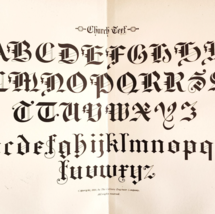 Church Text
ABCDEFGHI
LMNOPQRRS
TTUVWXYZ
cdefghijklmnopq
tuvwxyz